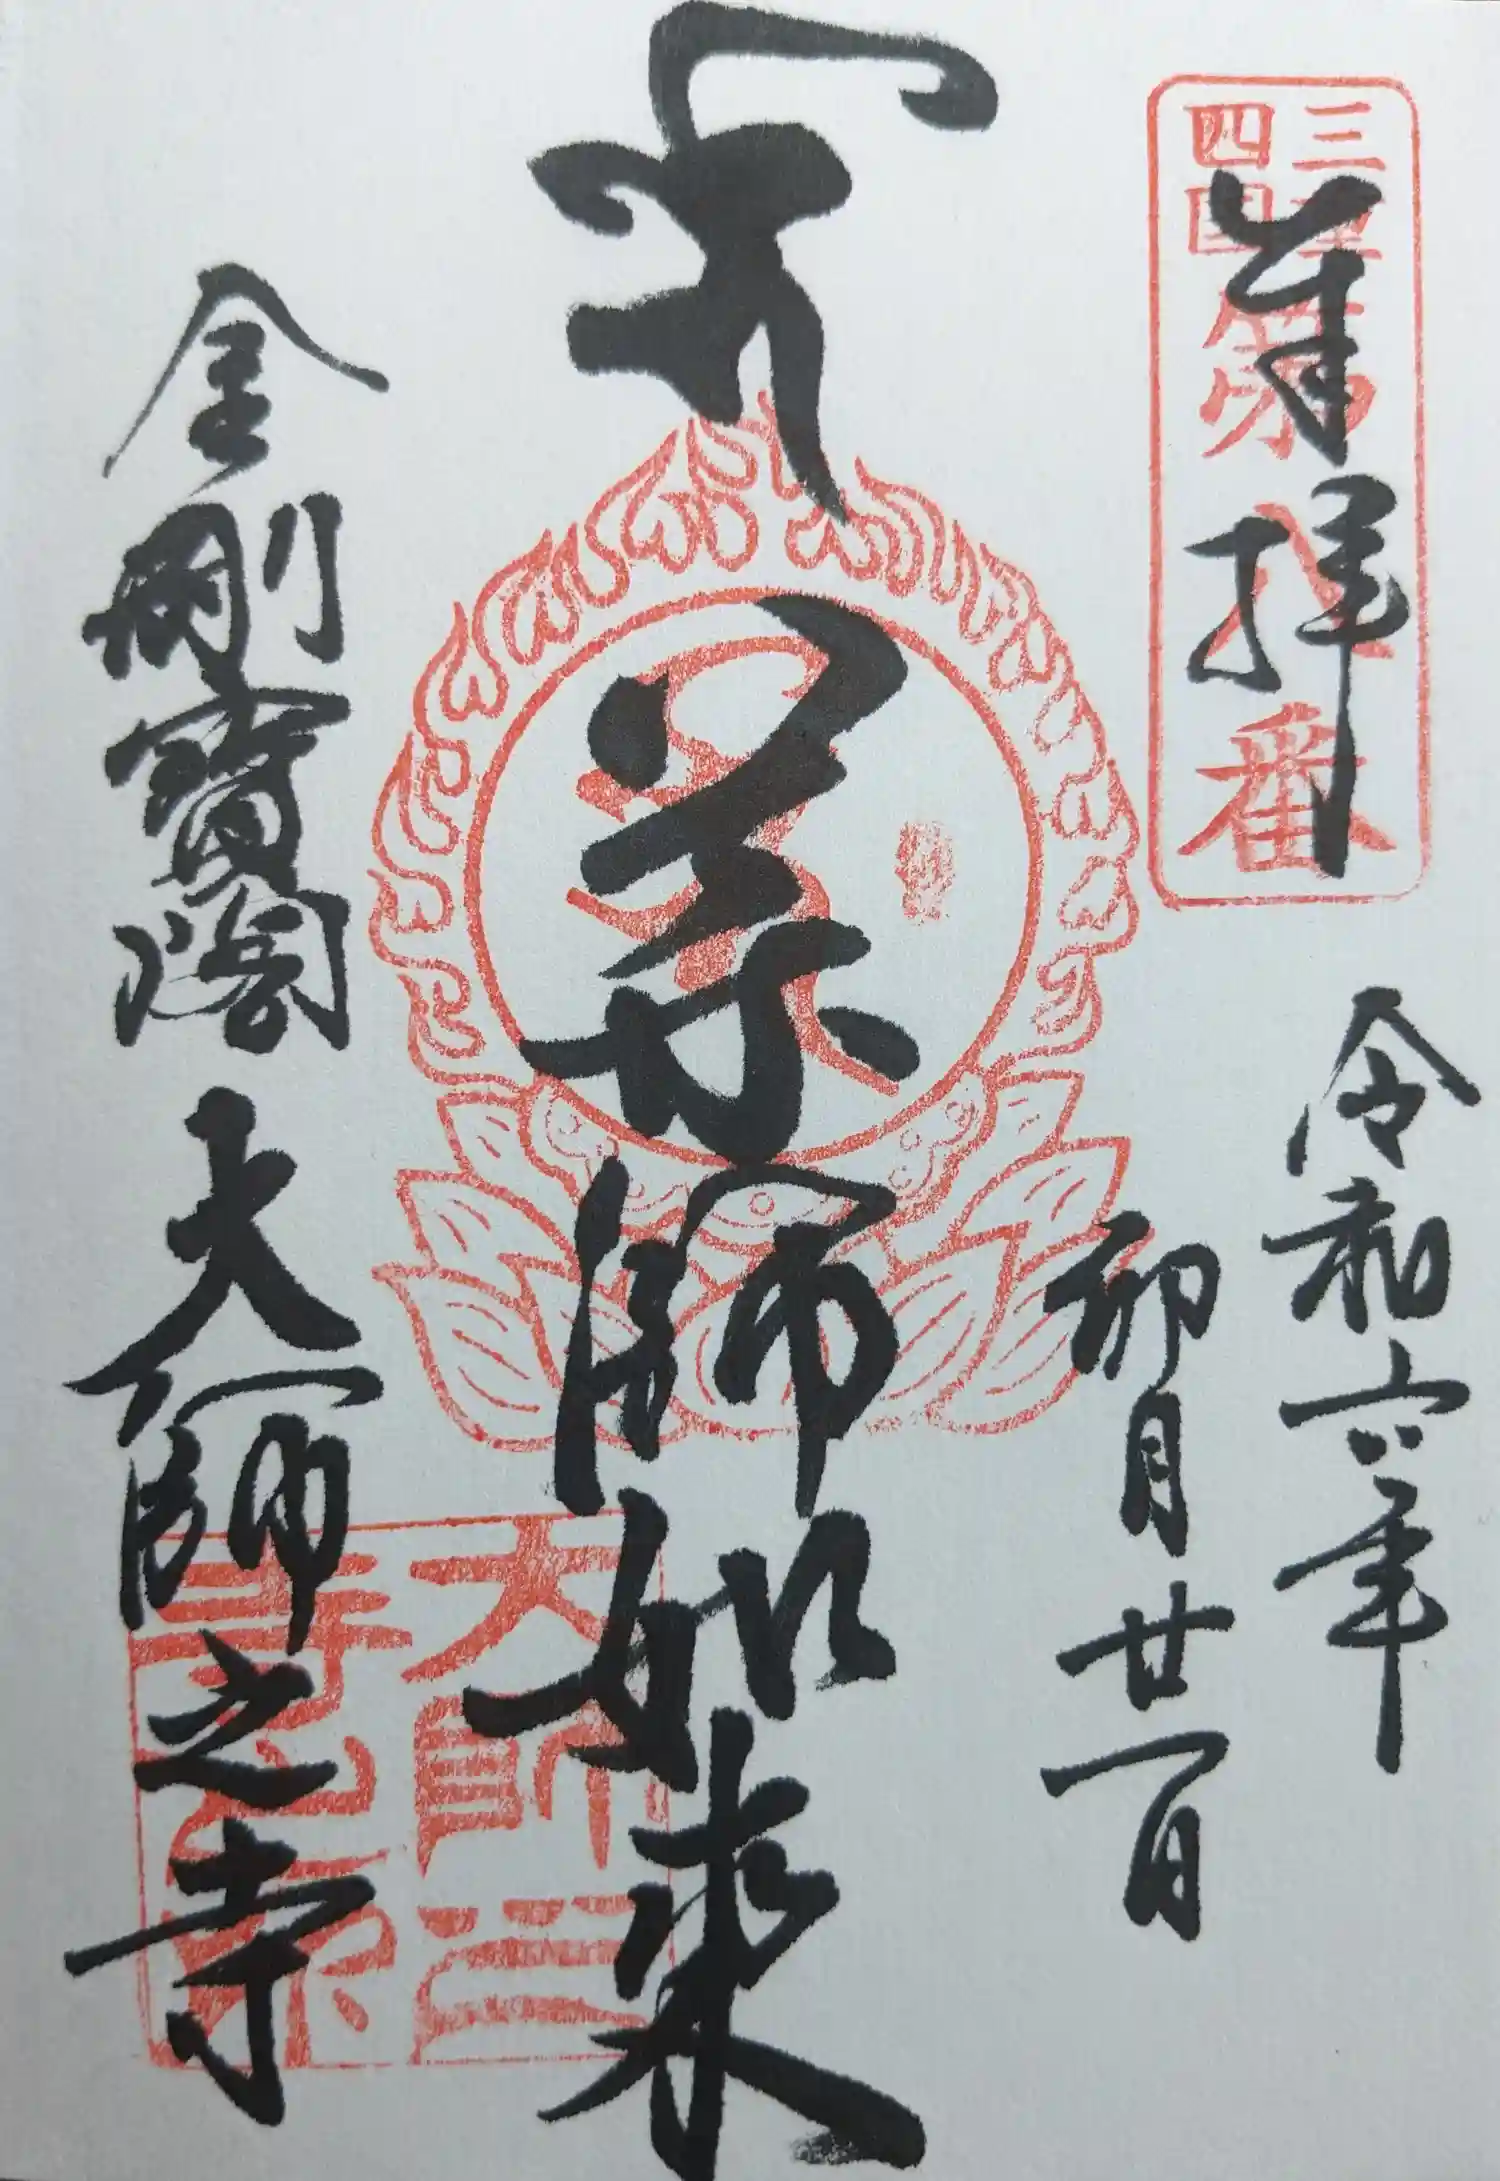 三重
四国
第八番
奉拝
令和六年
卯月廿一日
薬師如来
金剛寶閣 大師之寺